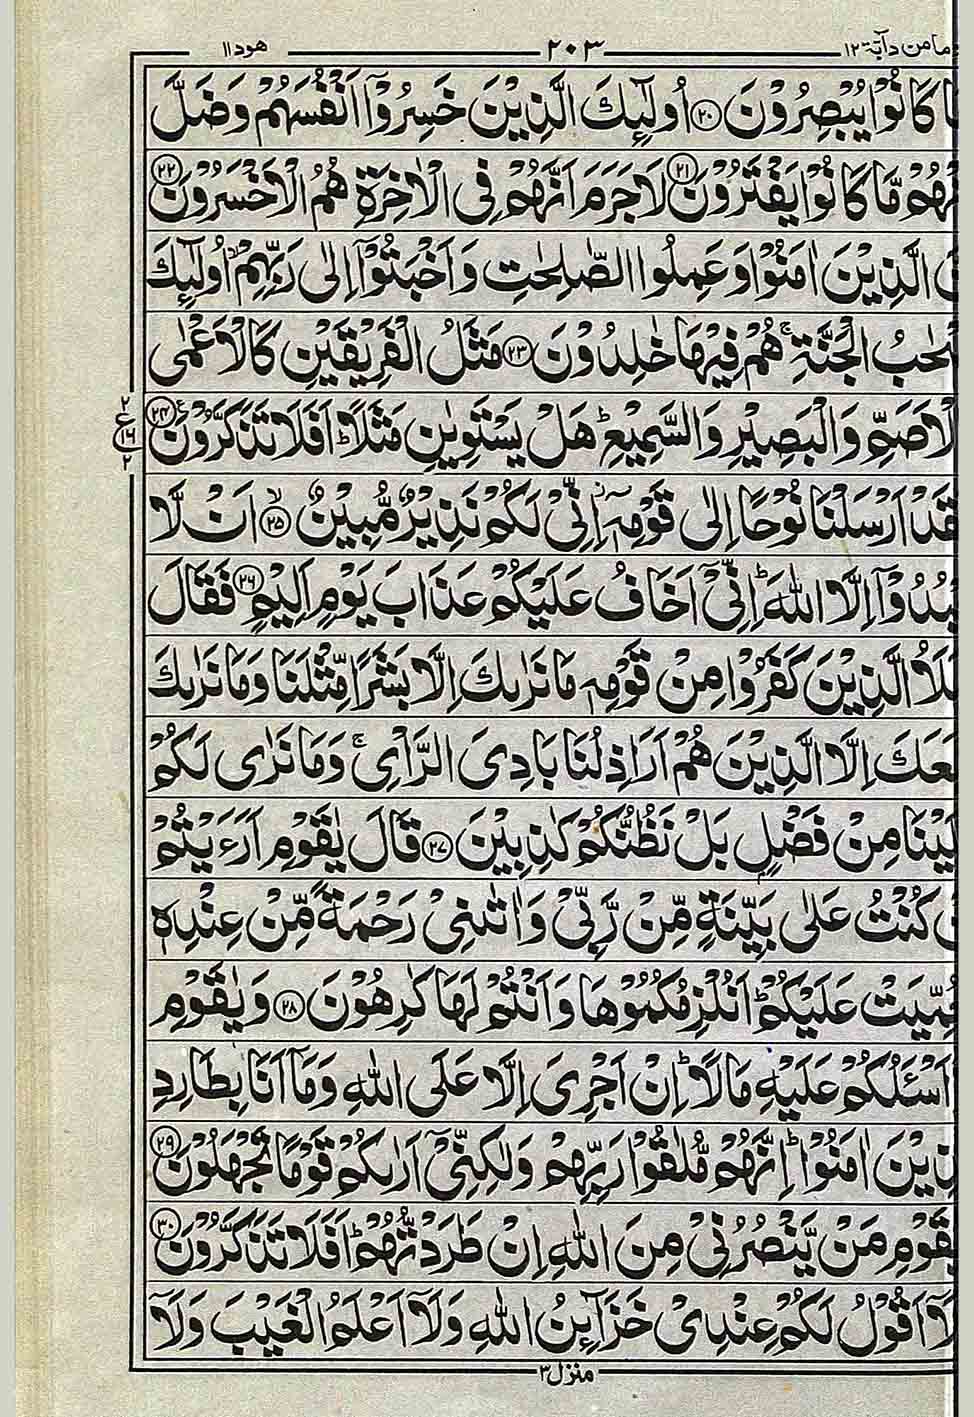 مامن دآبة ١٢ ٢٠٣ هود ١١
كَانُوْا يُبْصِرُوْنَ ﴿٢٠﴾ اُولٰٓئِكَ الَّذِيْنَ خَسِرُوْٓا اَنْفُسَهُمْ وَضَلَّ
مَّا كَانُوْا يَفْتَرُوْنَ ﴿٢١﴾ لَا جَرَمَ اَنَّهُمْ فِى الْاٰخِرَةِ هُمُ الْاَخْسَرُوْنَ ﴿٢٢﴾
الَّذِيْنَ اٰمَنُوْا وَعَمِلُوا الصّٰلِحٰتِ وَاَخْبَتُوْٓا اِلٰى رَبِّهِمْ اُولٰٓئِكَ
الْجَنَّةِ ۚ هُمْ فِيْهَا خٰلِدُوْنَ ﴿٢٣﴾ مَثَلُ الْفَرِيْقَيْنِ كَالْاَعْمٰى
وَالْبَصِيْرِ وَالسَّمِيْعِ ؕ هَلْ يَسْتَوِيٰنِ مَثَلًا ؕ اَفَلَا تَذَكَّرُوْنَ ﴿٢٤﴾
٢ ع ١٦ ٢
اَرْسَلْنَا نُوْحًا اِلٰى قَوْمِهٖٓ اِنِّىْ لَكُمْ نَذِيْرٌ مُّبِيْنٌ ﴿٢٥﴾ اَنْ لَّا
اِلَّا اللّٰهَ ؕ اِنِّىْٓ اَخَافُ عَلَيْكُمْ عَذَابَ يَوْمٍ اَلِيْمٍ ﴿٢٦﴾ فَقَالَ
الَّذِيْنَ كَفَرُوْا مِنْ قَوْمِهٖ مَا نَرٰىكَ اِلَّا بَشَرًا مِّثْلَنَا وَمَا نَرٰىكَ
اِلَّا الَّذِيْنَ هُمْ اَرَاذِلُنَا بَادِىَ الرَّاْىِ ۚ وَمَا نَرٰى لَكُمْ
مِنْ فَضْلٍۭ بَلْ نَظُنُّكُمْ كٰذِبِيْنَ ﴿٢٧﴾ قَالَ يٰقَوْمِ اَرَءَيْتُمْ
كُنْتُ عَلٰى بَيِّنَةٍ مِّنْ رَّبِّىْ وَاٰتٰىنِىْ رَحْمَةً مِّنْ عِنْدِهٖ
عَلَيْكُمْ ؕ اَنُلْزِمُكُمُوْهَا وَاَنْتُمْ لَهَا كٰرِهُوْنَ ﴿٢٨﴾ وَيٰقَوْمِ
اَسْـَٔلُكُمْ عَلَيْهِ مَالًا ؕ اِنْ اَجْرِىَ اِلَّا عَلَى اللّٰهِ وَمَآ اَنَا بِطَارِدِ
اٰمَنُوْا ؕ اِنَّهُمْ مُّلٰقُوْا رَبِّهِمْ وَلٰكِنِّىْٓ اَرٰىكُمْ قَوْمًا تَجْهَلُوْنَ ﴿٢٩﴾
مَنْ يَّنْصُرُنِىْ مِنَ اللّٰهِ اِنْ طَرَدْتُّهُمْ ؕ اَفَلَا تَذَكَّرُوْنَ ﴿٣٠﴾
اَقُوْلُ لَكُمْ عِنْدِىْ خَزَآئِنُ اللّٰهِ وَلَآ اَعْلَمُ الْغَيْبَ وَلَآ
منزل ٣